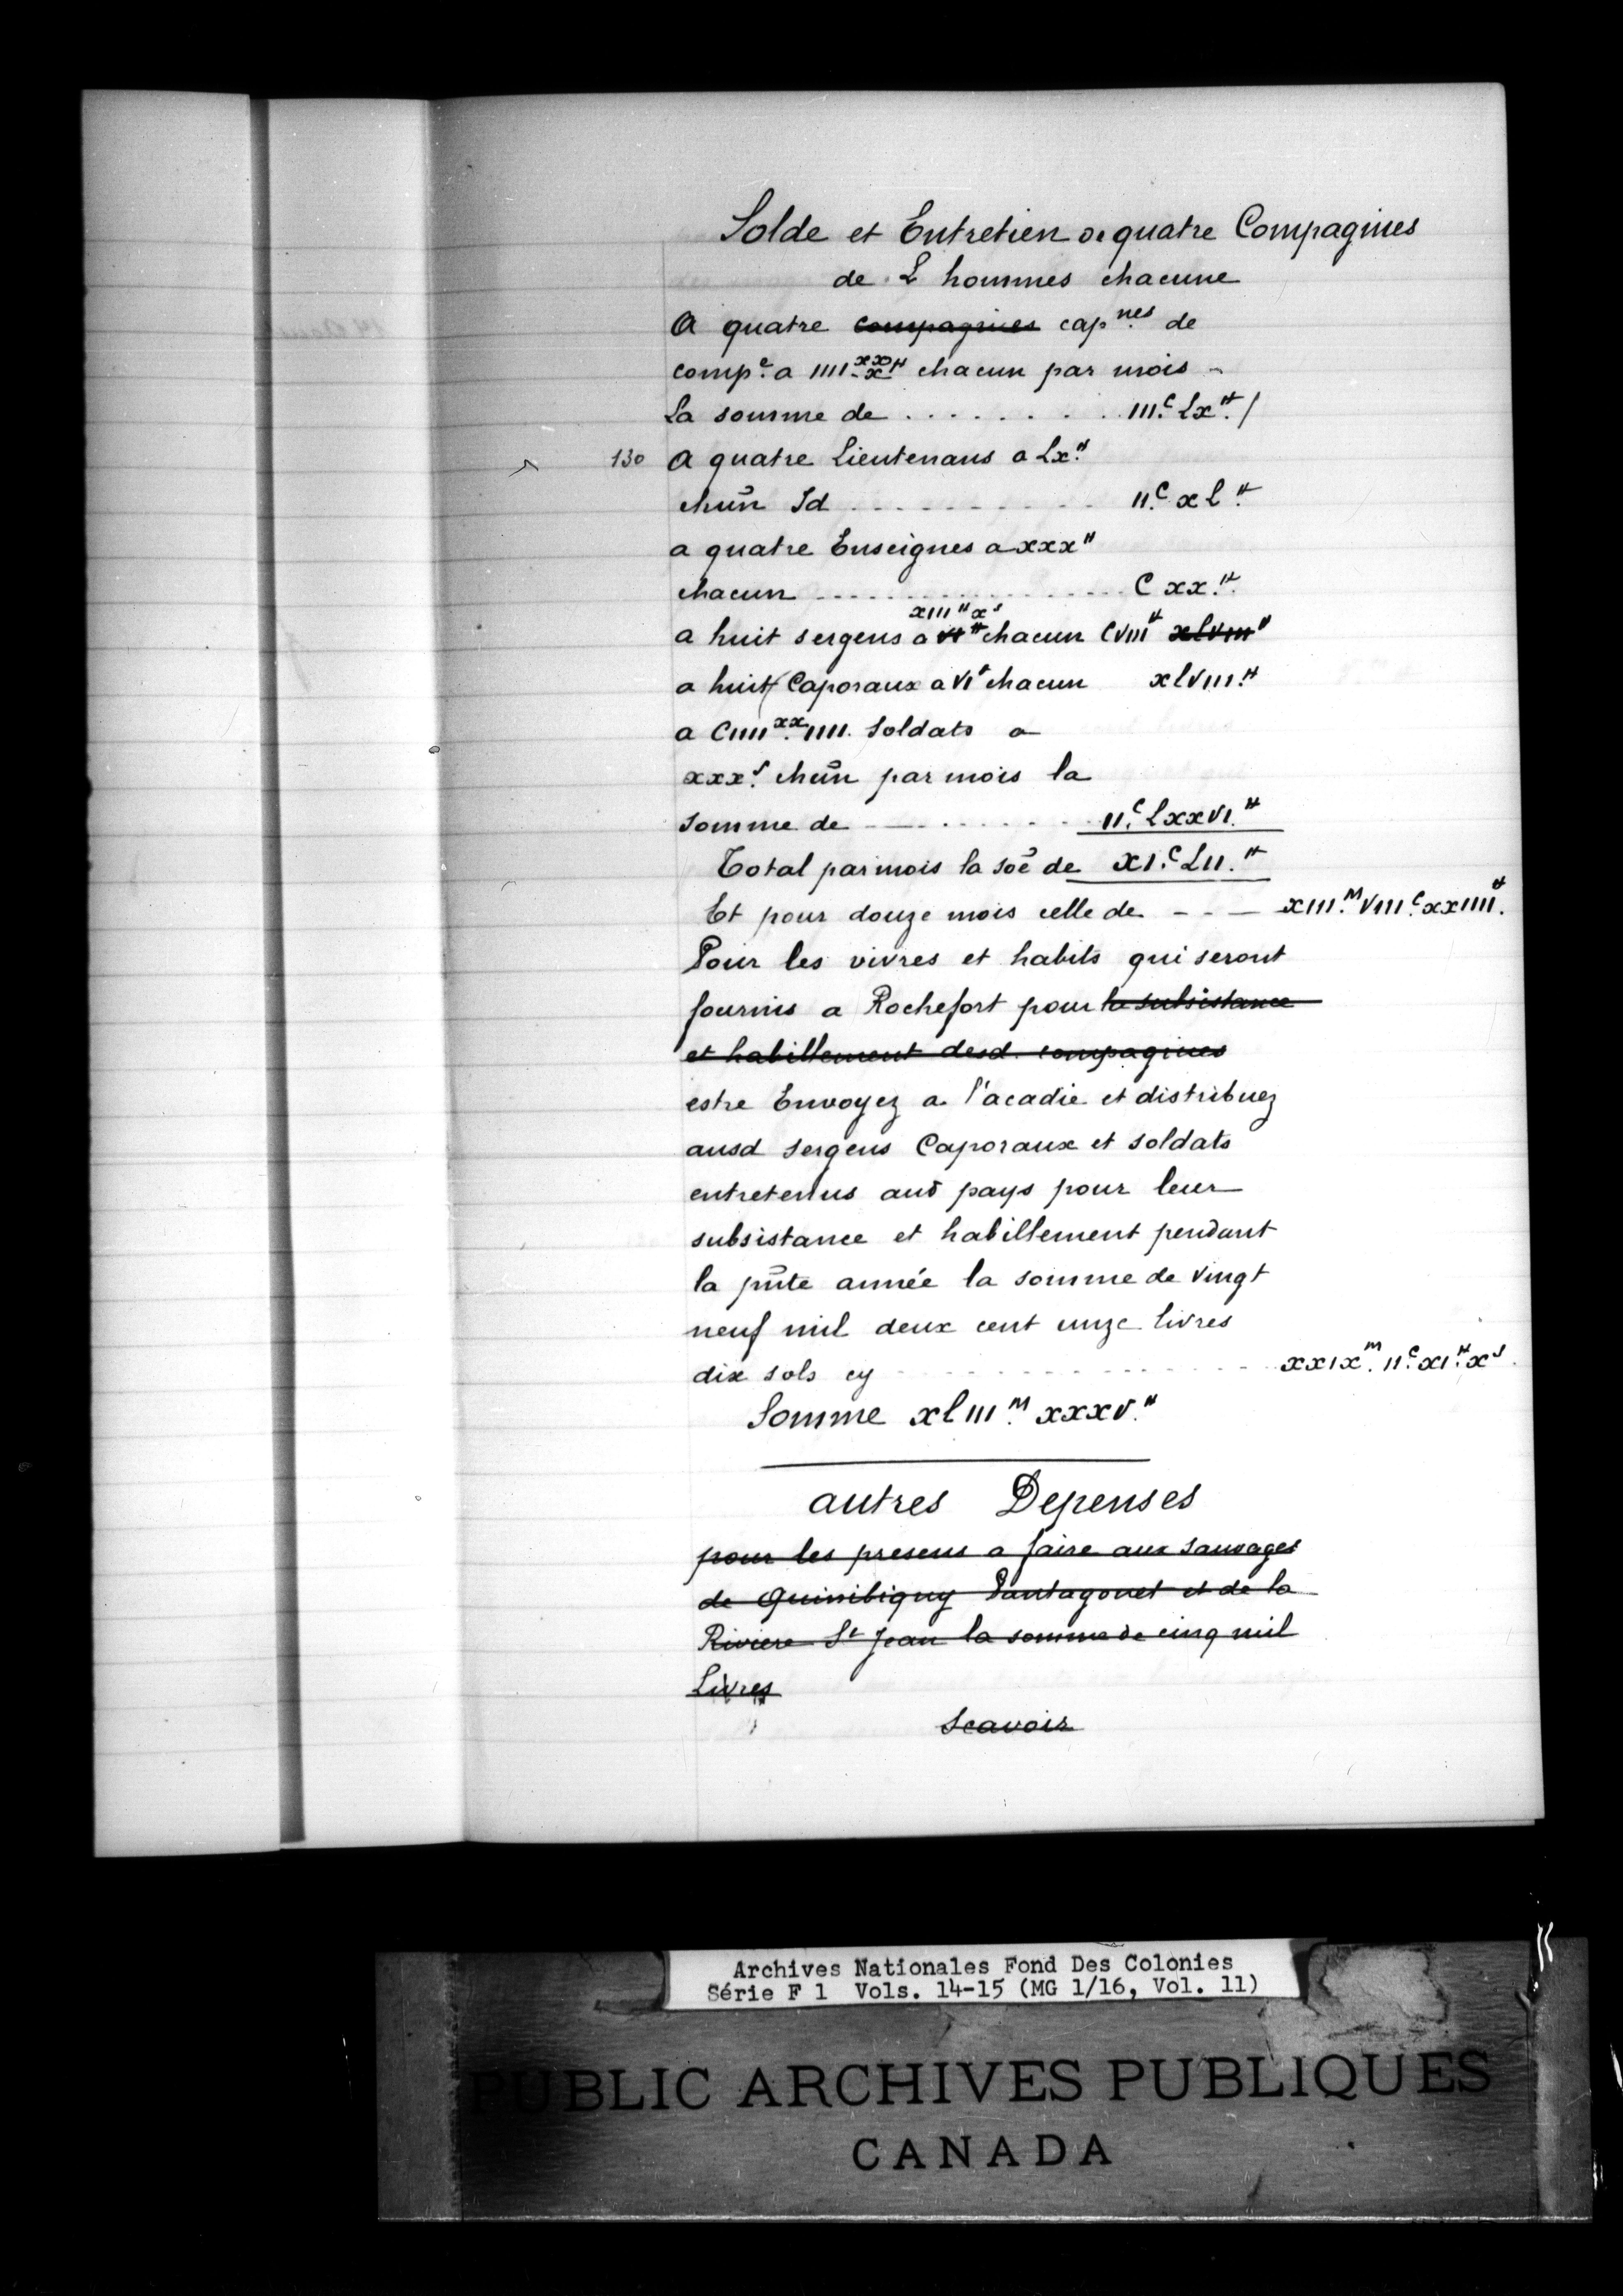 Solde et Entretien de quatre Compagnies
de L hommes chacune
A quatre compagnies cap.nes de
comp.e a IIII.xx x# chacun par mois -
La somme de . . . . . . . III.c Lx.# /
130 A quatre Lieutenans a Lx.#
chūn Id . . . . . . . . . II.c xl.#
a quatre Enseignes a xxx#
chacun . . . . . . . . . C xx.#
XIII# x s
a huit sergens a VI# chacun CVIII# xlVIII#
a huit Caporaux a VI# chacun xlVIII.#
a CIIII.xx IIII. Soldats a
xxx.s chūn par mois la
somme de . . . . . . II.c LxxVI.#
Total par mois la soē de XI.c LII.#
Et pour douze mois celle de - - - XIII.M VIII.c xxIIII.#
Pour les vivres et habits qui seront
fournis a Rochefort pour la subsistance
et habillement desd. compagnies
estre Envoyez a l'acadie et distribuez
ausd sergens Caporaux et soldats
entretenus aud pays pour leur
subsistance et habillement pendant
la pn̄te année la somme de vingt
neuf mil deux cent unze livres
dix sols cy . . . . . . . . xxIx.m II.c xI.# x s.
Somme xlIII.M xxxV.#
autres Depenses
pour les presens a faire aux sauvages
de Quinibiquy Pantagouet et de la
Riviere St Jean la somme de cinq mil
Livres
Scavoir
Archives Nationales Fond Des Colonies
Série F 1 Vols. 14-15 (MG 1/16, Vol. 11)
PUBLIC ARCHIVES PUBLIQUES
CANADA